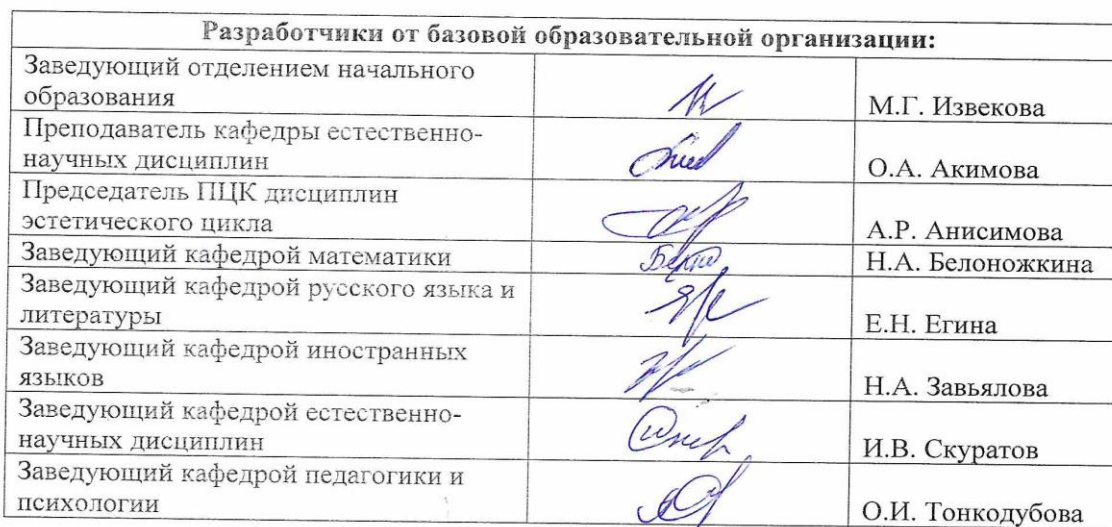 Разработчики от базовой образовательной организации:
Заведующий отделением начального
образования
М.Г. Извекова
Преподаватель кафедры естественно-
научных дисциплин
О.А. Акимова
Председатель ПЦК дисциплин
эстетического цикла
А.Р. Анисимова
Заведующий кафедрой математики
Н.А. Белоножкина
Заведующий кафедрой русского языка и
литературы
Е.Н. Егина
Заведующий кафедрой иностранных
языков
Н.А. Завьялова
Заведующий кафедрой естественно-
научных дисциплин
И.В. Скуратов
Заведующий кафедрой педагогики и
психологии
О.И. Тонкодубова